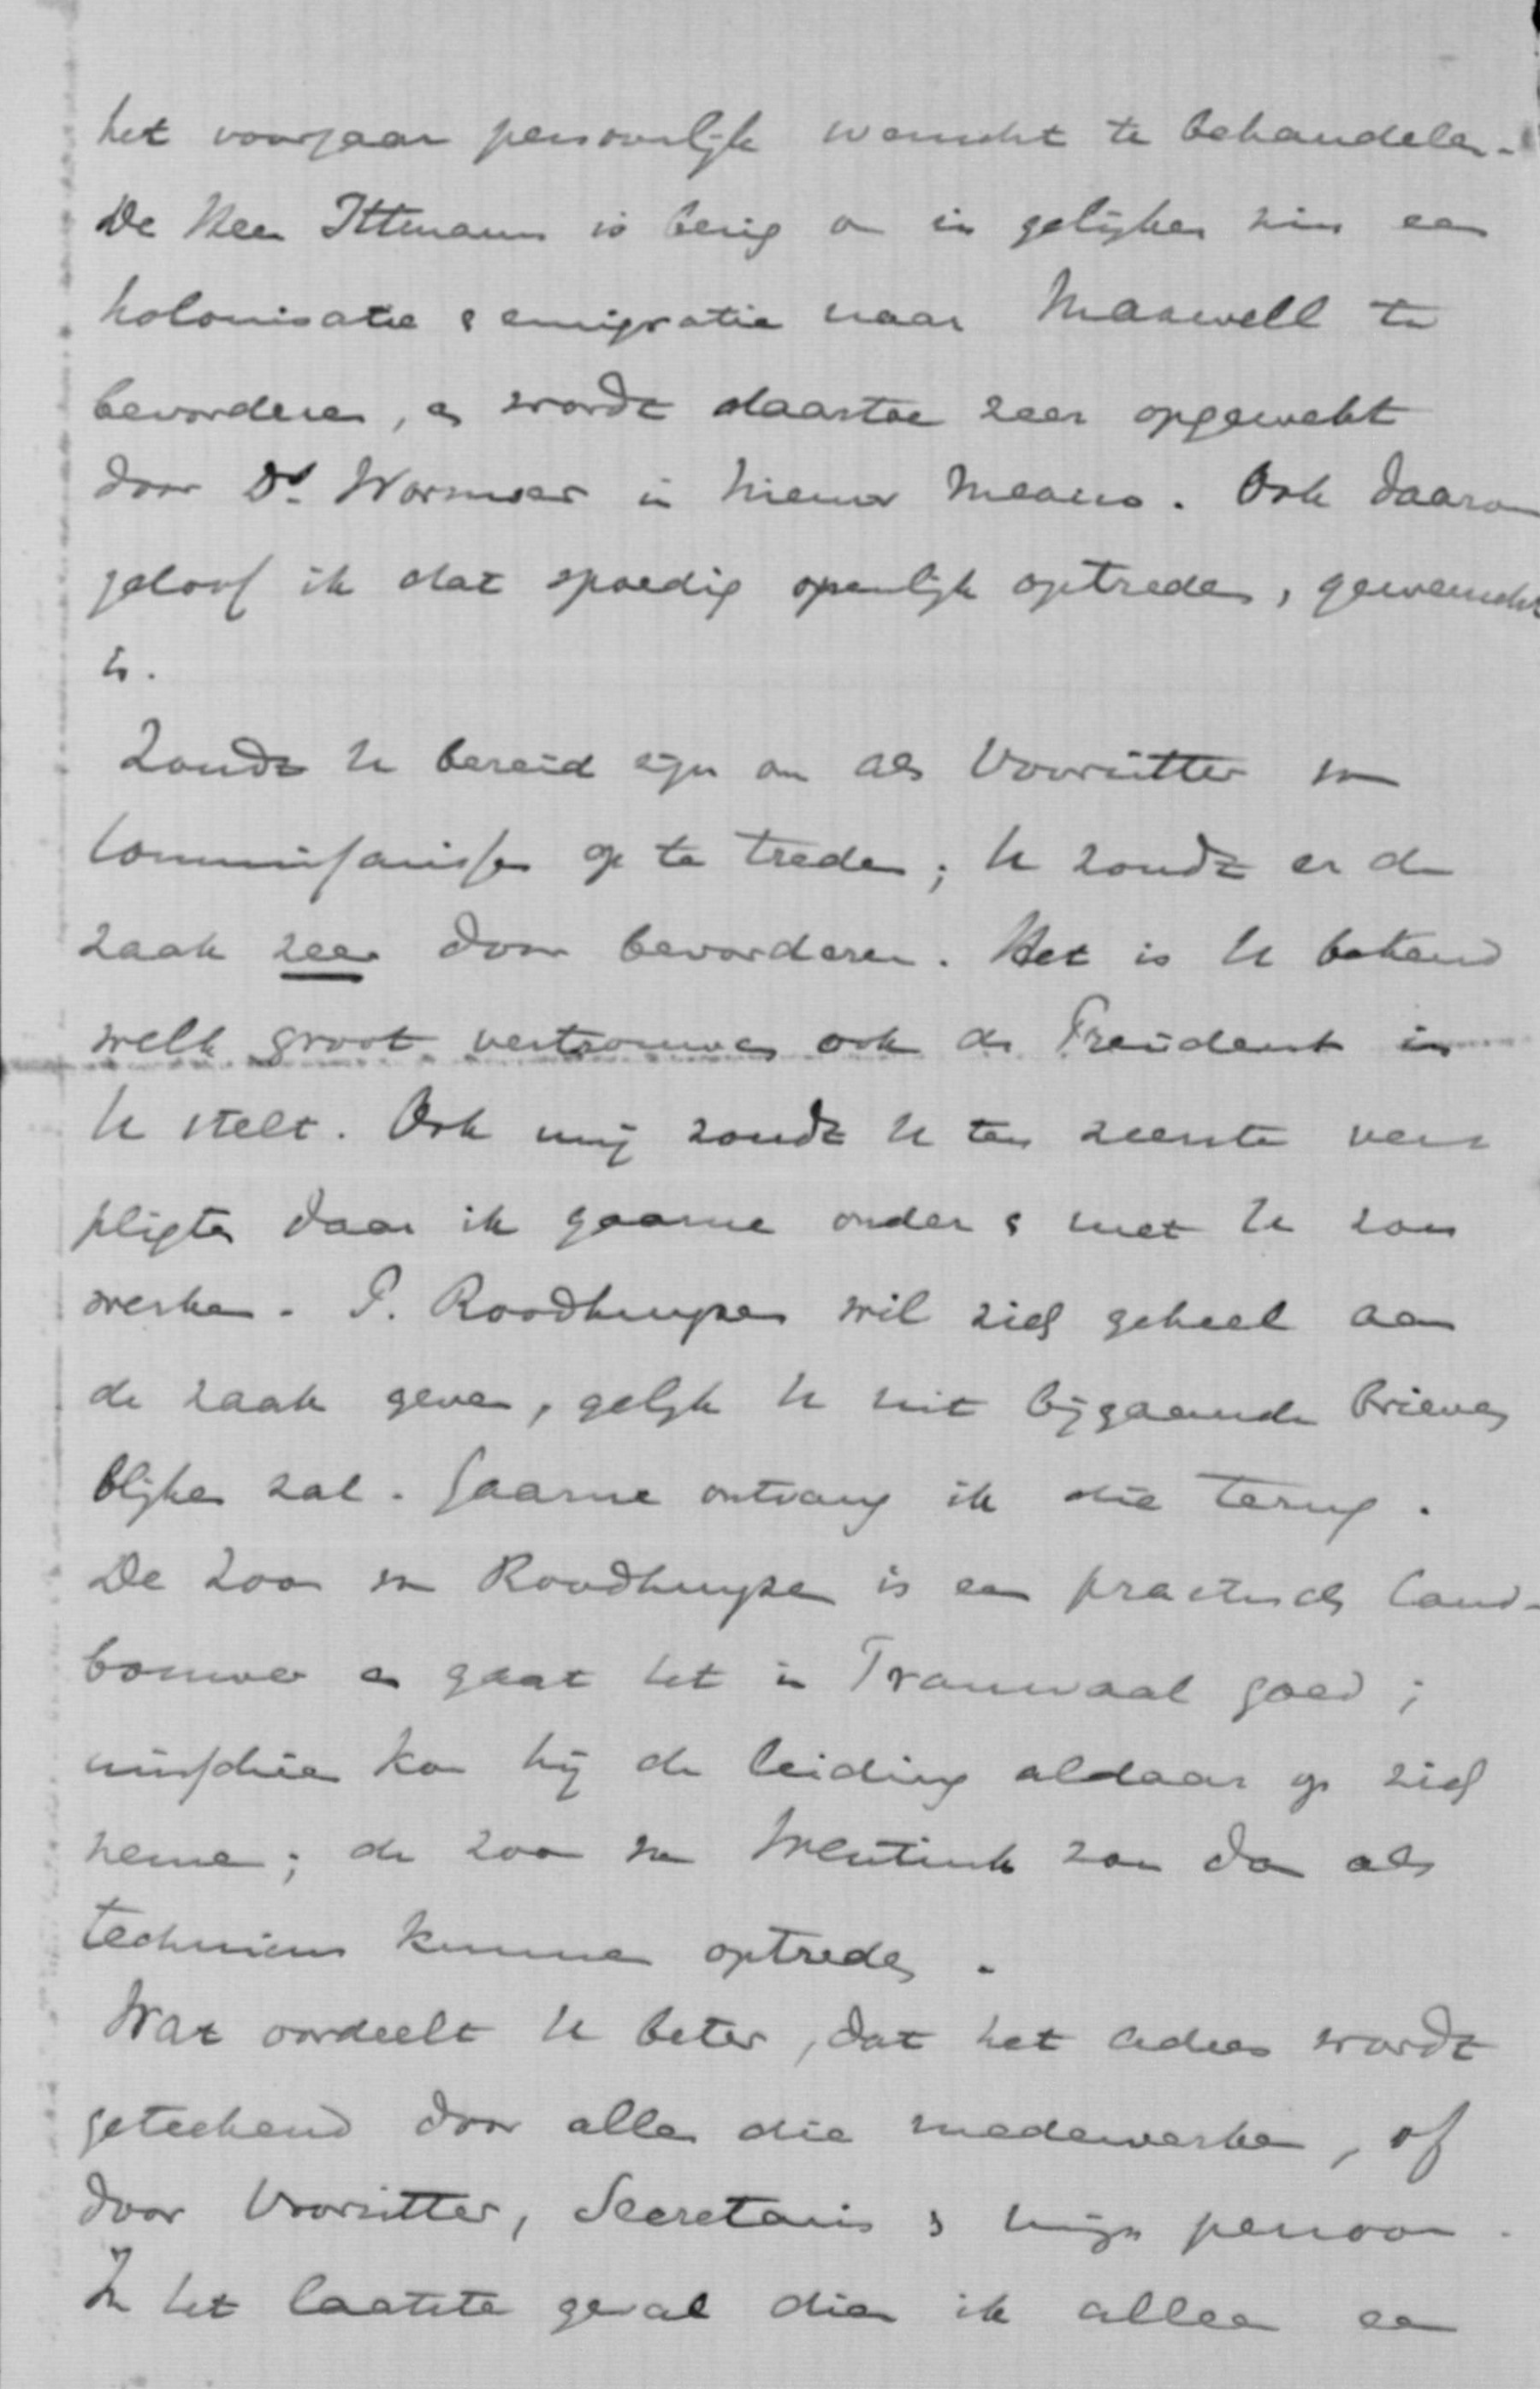 het voorjaar persoonlijk wenscht te behandelen.
De Heer Ittmann is bezig om in gelijken zin een
kolonisatie & emigratie naar Maxwell te
bevorderen, en wordt daartoe zeer opgewekt
door Ds. Wormser in Nieuw Mexico. Ook daarom
geloof ik dat spoedig openlijk optreden, gewenscht
is.
Zoudt U bereid zijn om als Voorzitter van
Commissarissen op te treden; U zoudt er de
zaak zeer door bevorderen. Het is U bekend
welk groot vertrouwen ook de President in
U stelt. Ook mij zoudt U ten zeerste ver
pligten daar ik gaarne onder & met U zou
werken. P. Roodhuyzen wil zich geheel aan
de zaak geven, gelijk U uit bijgaande brieven
blijken zal. Gaarne ontvang ik die terug.
De zoon van Roodhuyzen is een practisch land-
bouwer en gaat het in Transvaal goed;
misschien kan hij de leiding aldaar op zich
nemen; de zoon van Wentink zou dan als
technicus kunnen optreden.
Wat oordeelt U beter, dat het adres wordt
geteekend door allen die medewerken, of
door Voorzitter, Secretaris & mijn persoon.
In het laatste geval dien ik alleen een